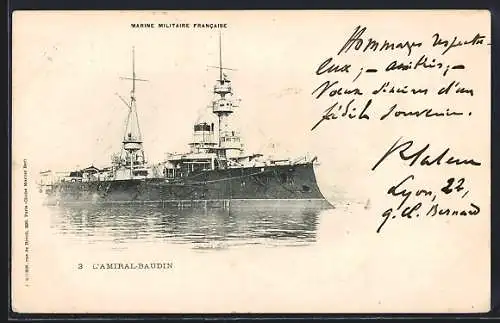 MARINE MILITAIRE FRANÇAISE
Hommages respectu-
eux, - amitiés, -
Vœux sincères d'un
fidèle souvenir.
Lyon, 22,
q. Cl. Bernard
3 L'AMIRAL-BAUDIN